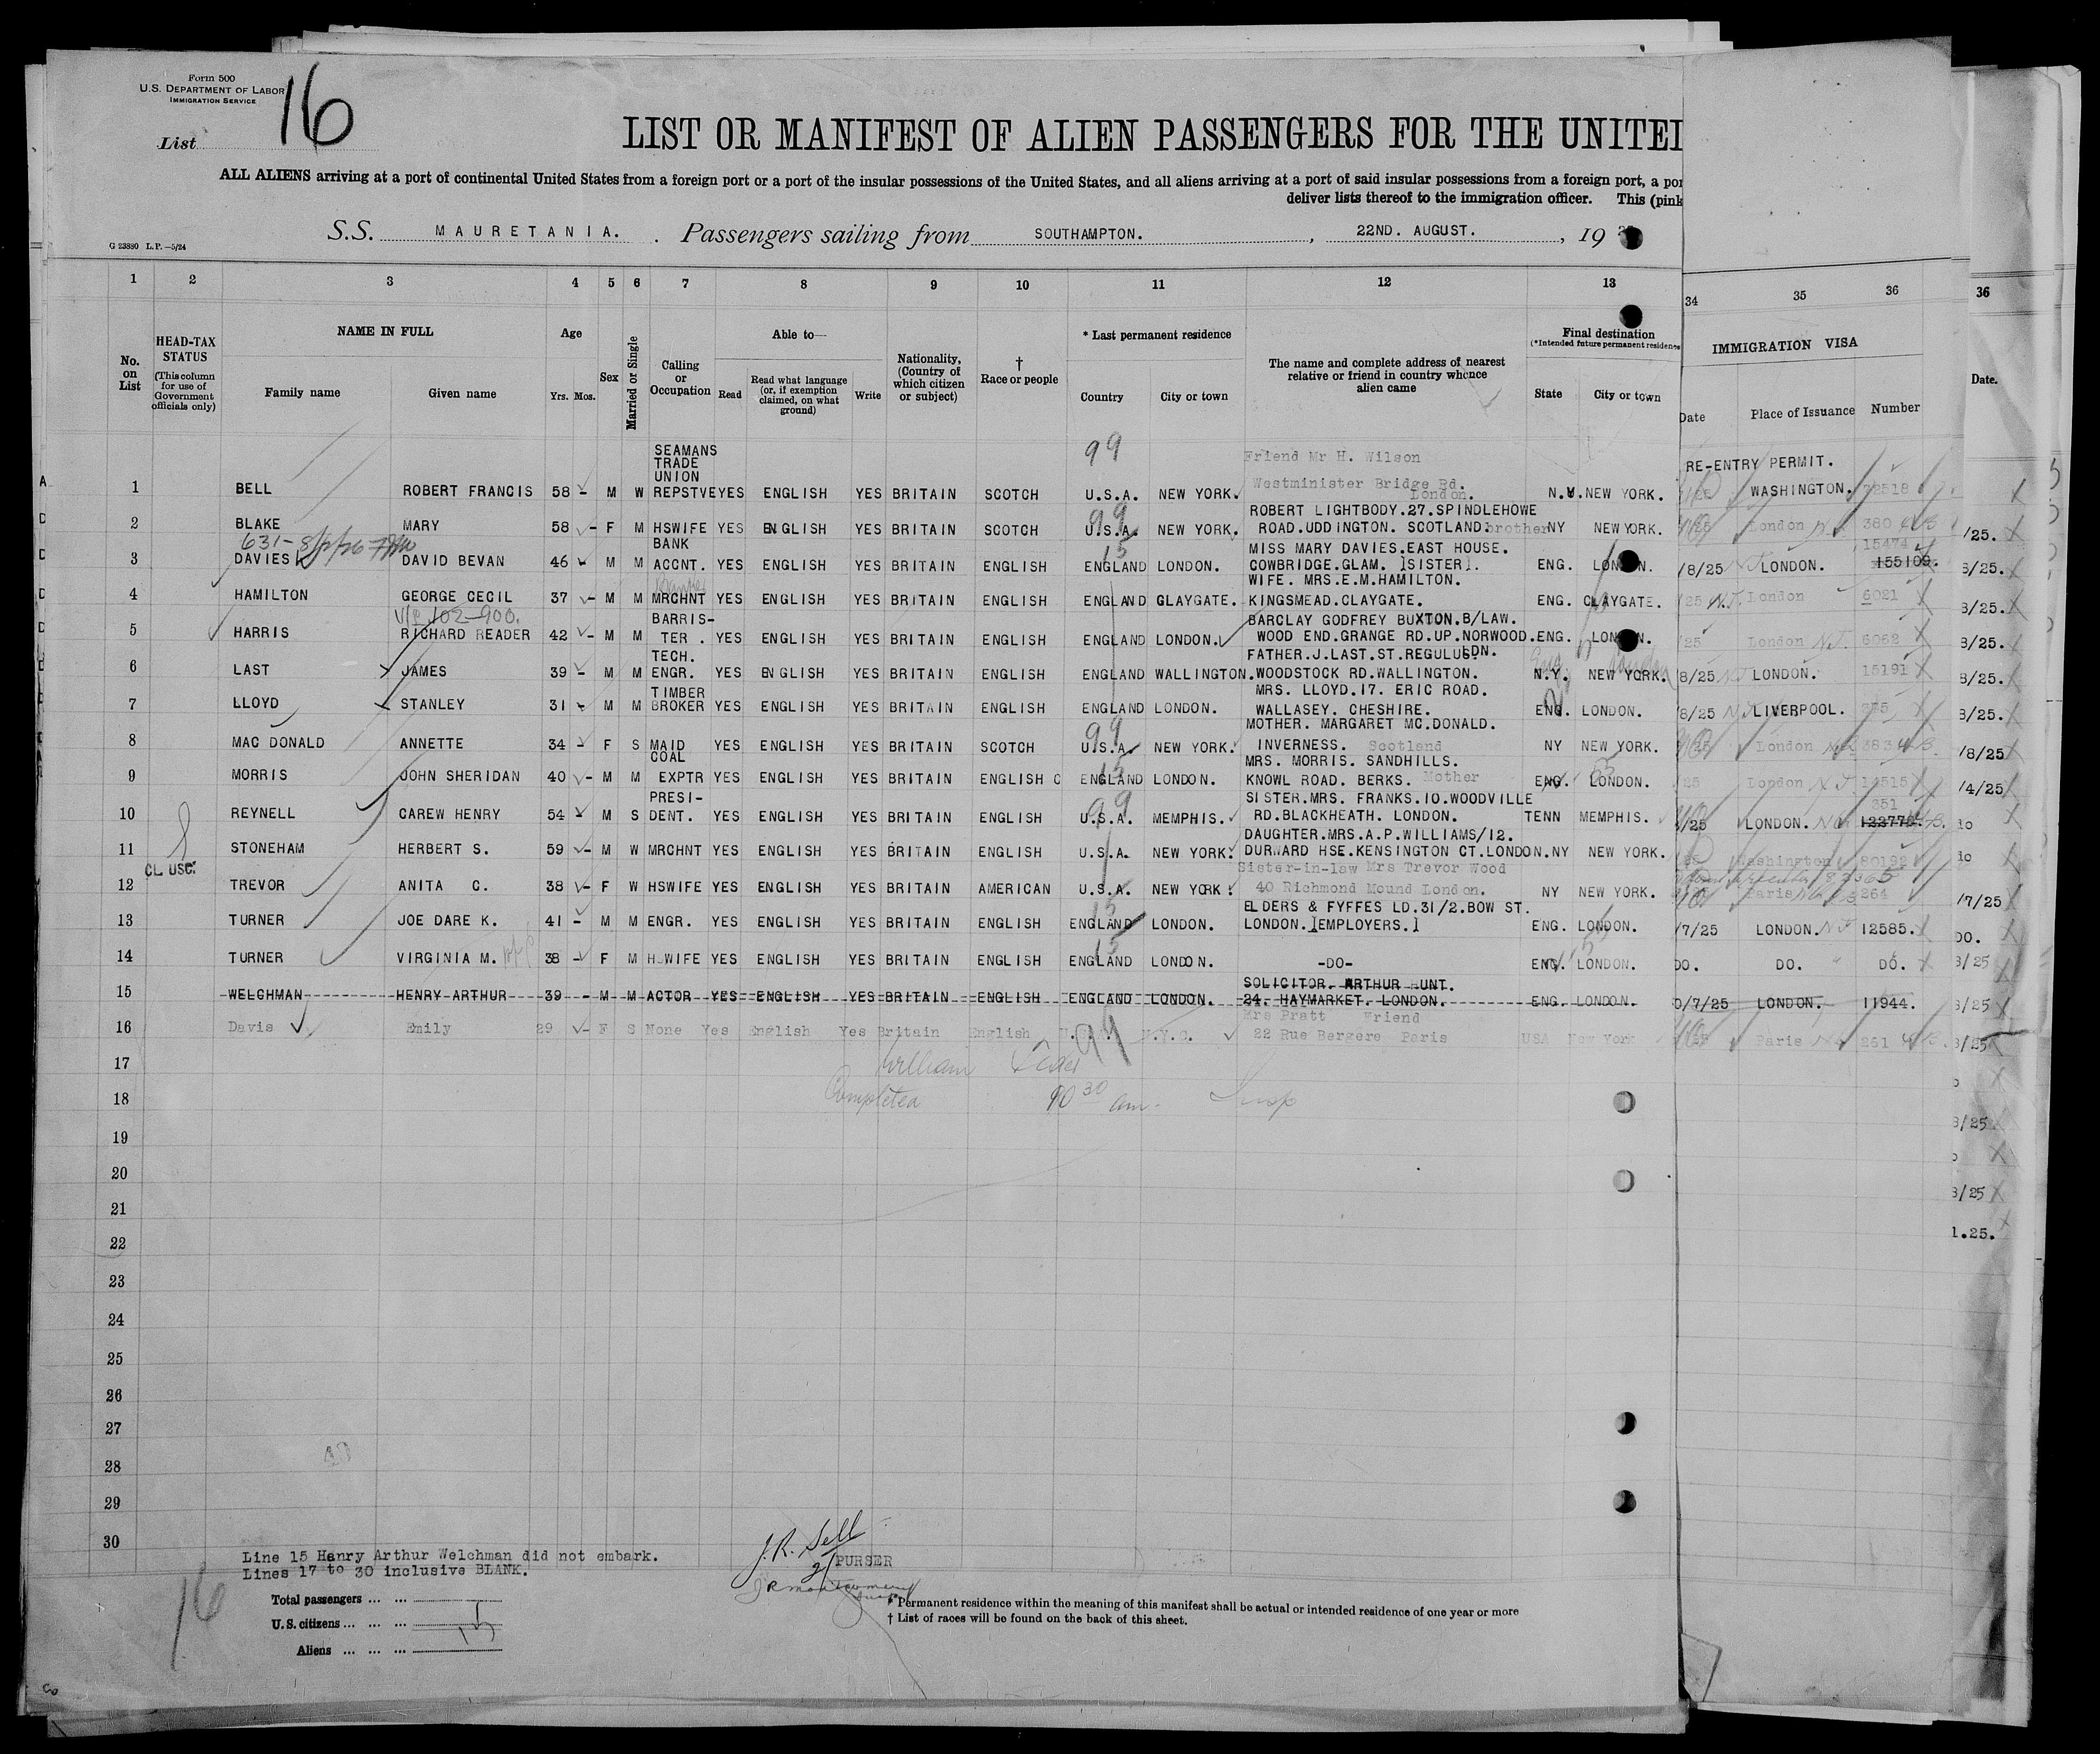 Form 500
U.S. DEPARTMENT OF LABOR
IMMIGRATION SERVICE
List 16
LIST OR MANIFEST OF ALIEN PASSENGERS FOR THE UNITE
ALL ALIENS arriving at a port of continental United States from a foreign port or a port of the insular possessions of the United States, and all aliens arriving at a port of said insular possessions from a foreign port, a por
deliver lists thereof to the immigration officer. This (pink
S.S. MAURETANIA. Passengers sailing from SOUTHAMPTON. , 22ND. AUGUST. , 19
G 23880 L.P.—5/24
1 2 3 4 5 6 7 8 9 10 11 12 13 34 35 36 36
No. on List
HEAD-TAX STATUS (This column for use of Government officials only)
NAME IN FULL
Family name Given name
Age
Yrs. Mos.
Sex
Married or Single
Calling or Occupation
Able to—
Read Read what language (or, if exemption claimed, on what ground) Write
Nationality, (Country of which citizen or subject)
† Race or people
* Last permanent residence
Country City or town
The name and complete address of nearest relative or friend in country whence alien came
Final destination
(*Intended future permanent residence
State City or town
IMMIGRATION VISA
Date Place of Issuance Number
Date.
99
SEAMANS TRADE UNION
Friend Mr H. Wilson
RE-ENTRY PERMIT.
1 BELL ROBERT FRANCIS 58 - M W REPSTVE YES ENGLISH YES BRITAIN SCOTCH U.S.A. NEW YORK. Westminister Bridge Rd. London. N.Y. NEW YORK. WASHINGTON. 72518
ROBERT LIGHTBODY.27.SPINDLEHOWE
2 BLAKE MARY 58 - F M HSWIFE YES ENGLISH YES BRITAIN SCOTCH U.S.A. NEW YORK. ROAD.UDDINGTON. SCOTLAND. brother NY NEW YORK. London 380 /25.
BANK MISS MARY DAVIES.EAST HOUSE. 15474
3 DAVIES DAVID BEVAN 46 - M M ACCNT. YES ENGLISH YES BRITAIN ENGLISH ENGLAND LONDON. COWBRIDGE.GLAM. ]SISTER]. ENG. LONDON. /8/25 LONDON. 155109. 8/25.
WIFE. MRS.E.M.HAMILTON.
4 HAMILTON GEORGE CECIL 37 - M M MRCHNT YES ENGLISH YES BRITAIN ENGLISH ENGLAND CLAYGATE. KINGSMEAD.CLAYGATE. ENG. CLAYGATE. 25 London 6021 8/25.
BARRIS- BARCLAY GODFREY BUXTON.B/LAW.
5 HARRIS RICHARD READER 42 - M M TER . YES ENGLISH YES BRITAIN ENGLISH ENGLAND LONDON. WOOD END.GRANGE RD.UP.NORWOOD. ENG. LONDON. /25 London 6062 8/25.
TECH. FATHER.J.LAST.ST.REGULUS LDN.
6 LAST JAMES 39 - M M ENGR. YES ENGLISH YES BRITAIN ENGLISH ENGLAND WALLINGTON. WOODSTOCK RD.WALLINGTON. N.Y. NEW YORK. 8/25 LONDON. 15191 8/25.
TIMBER MRS. LLOYD.17. ERIC ROAD.
7 LLOYD STANLEY 31 - M M BROKER YES ENGLISH YES BRITAIN ENGLISH ENGLAND LONDON. WALLASEY. CHESHIRE. ENG. LONDON. /8/25 LIVERPOOL. 8/25.
MOTHER. MARGARET MC.DONALD.
8 MAC DONALD ANNETTE 34 - F S MAID YES ENGLISH YES BRITAIN SCOTCH U.S.A. NEW YORK. INVERNESS. Scotland NY NEW YORK. /25 London 383 /8/25
COAL MRS. MORRIS. SANDHILLS.
9 MORRIS JOHN SHERIDAN 40 - M M EXPTR YES ENGLISH YES BRITAIN ENGLISH C ENGLAND LONDON. KNOWL ROAD. BERKS. Mother ENG. LONDON. 25 London 14515 /4/25
PRESI- SISTER.MRS. FRANKS.10.WOODVILLE 351
10 REYNELL CAREW HENRY 54 - M S DENT. YES ENGLISH YES BRITAIN ENGLISH U.S.A. MEMPHIS. RD.BLACKHEATH. LONDON. TENN MEMPHIS. /25 LONDON. 122772.
DAUGHTER.MRS.A.P.WILLIAMS/12.
11 STONEHAM HERBERT S. 59 - M W MRCHNT YES ENGLISH YES BRITAIN ENGLISH U.S.A. NEW YORK. DURWARD HSE.KENSINGTON CT.LONDON. NY NEW YORK. Washington 80192
CL USC. Sister-in-law Mrs Trevor Wood
12 TREVOR ANITA C. 38 - F W HSWIFE YES ENGLISH YES BRITAIN AMERICAN U.S.A. NEW YORK. 40 Richmond Mound London. NY NEW YORK. Paris 264 /7/25
ELDERS & FYFFES LD.31/2.BOW ST.
13 TURNER JOE DARE K. 41 - M M ENGR. YES ENGLISH YES BRITAIN ENGLISH ENGLAND LONDON. LONDON.]EMPLOYERS.] ENG. LONDON. /7/25 LONDON. 12585. DO.
14 TURNER VIRGINIA M. 38 - F M H.WIFE YES ENGLISH YES BRITAIN ENGLISH ENGLAND LONDON. -DO- ENG. LONDON. DO. DO. DO. 8/25
SOLICITOR. ARTHUR HUNT.
15 WELCHMAN HENRY ARTHUR 39 - M M ACTOR YES ENGLISH YES BRITAIN ENGLISH ENGLAND LONDON. 24. HAYMARKET. LONDON. ENG. LONDON. 0/7/25 LONDON. 11944. 8/25
Mrs Pratt Friend
16 Davis Emily 29 - F S None Yes English Yes Britain English N.Y.C. 22 Rue Bergere Paris USA New York Paris 261 8/25
17 William
18 Completed 10 30 am. Insp
19 8/25
20
21 8/25
22 1.25.
23
24
25
26
27
28
29
30
Line 15 Henry Arthur Welchman did not embark.
Lines 17 to 30 inclusive BLANK.
J.R. Sell
PURSER
16
Total passengers ... ...
U.S. citizens ... ... ... 1
Aliens ... ... ... 15
* Permanent residence within the meaning of this manifest shall be actual or intended residence of one year or more
† List of races will be found on the back of this sheet.